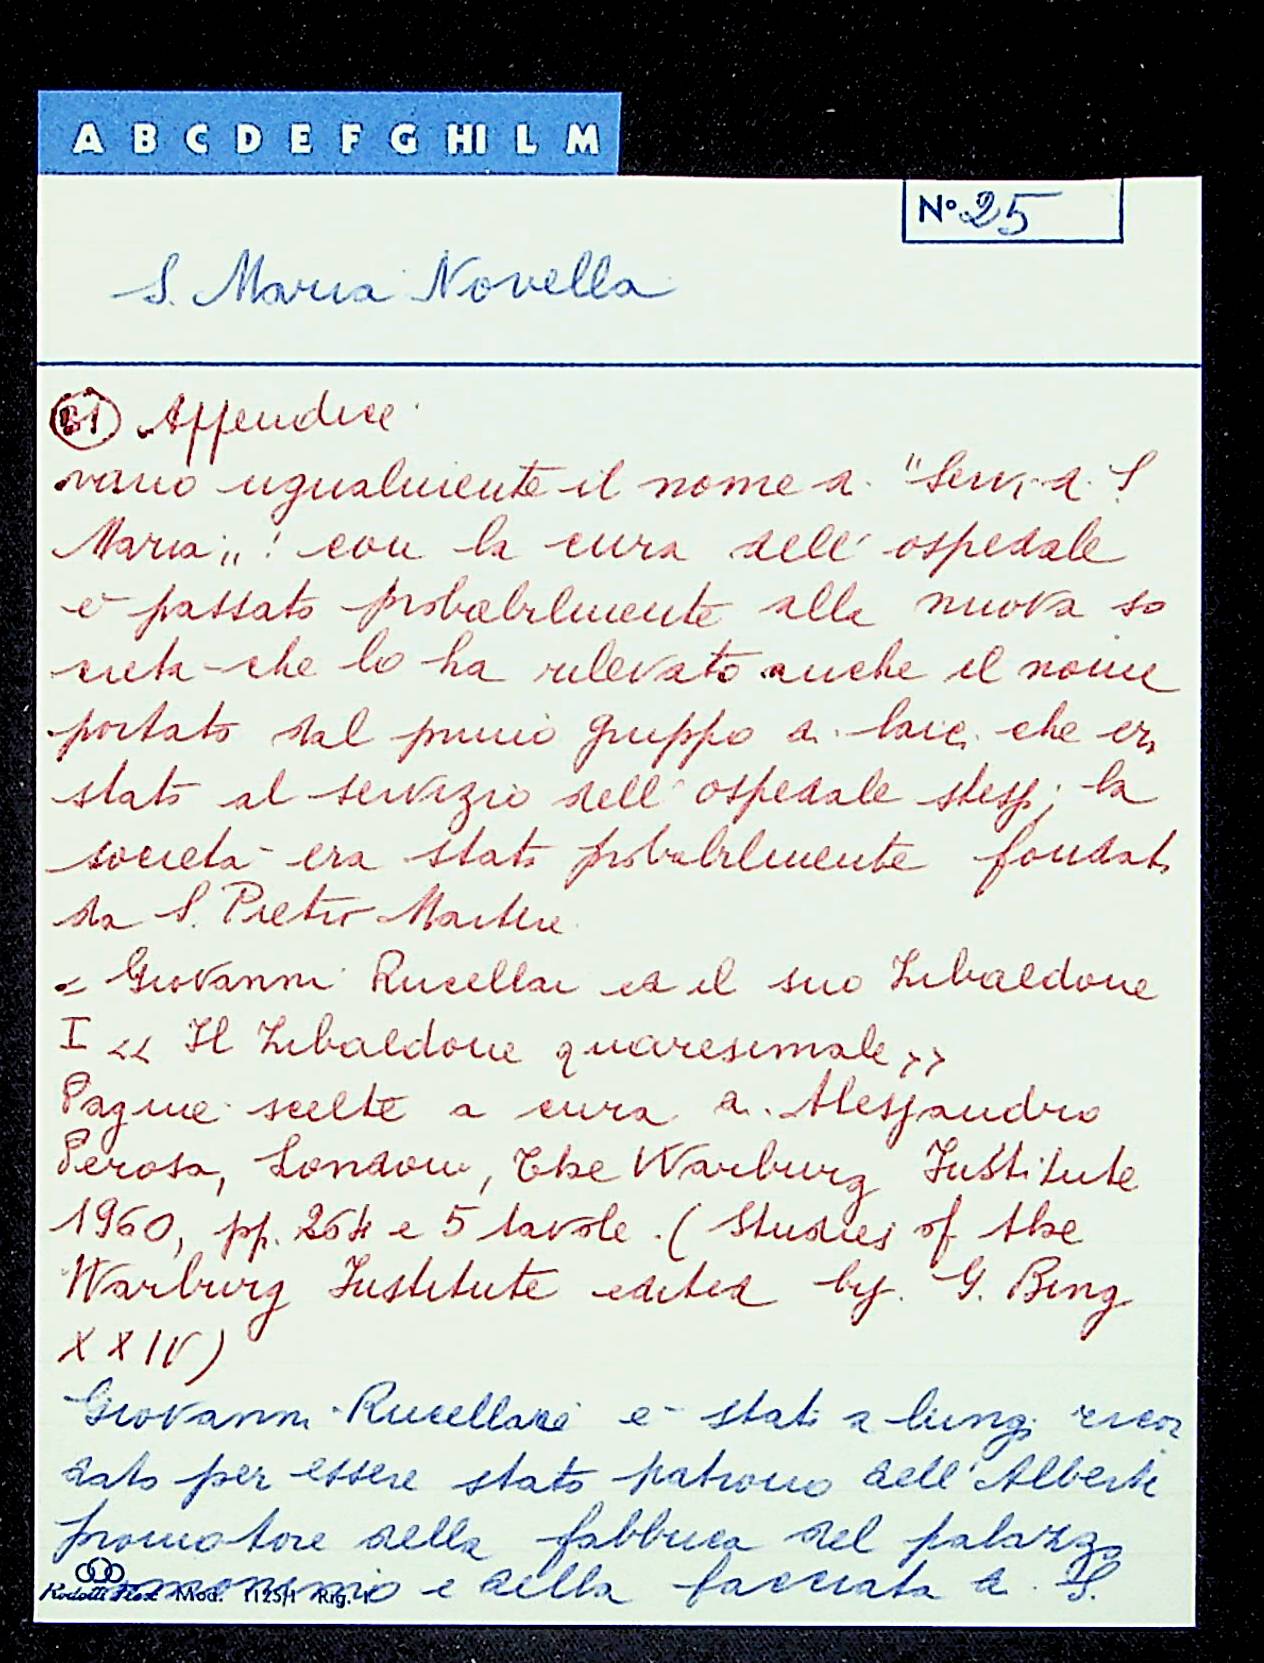 A B C D E F G HI L M
N° 25
S. Maria Novella
31 Appendice
vano ugualmente il nome di "Servi di S.
Maria": con la cura dell'ospedale
è passato probabilmente alla nuova so
cietà che lo ha rilevato anche il nome
portato dal primo gruppo di laici che era
stato al servizio dell'ospedale stesso; la
società era stata probabilmente fondata
da S. Pietro Martire
= Giovanni Rucellai ed il suo Zibaldone
I << Il Zibaldone quaresimale >>
Pagine scelte a cura di Alessandro
Perosa, London, The Warburg Institute
1960, pp. 264 e 5 tavole. (Studies of the
Warburg Institute edited by G. Bing
XXIV)
Giovanni Rucellai è stato a lungo ricor
dato per essere stato patrono dell'Alberti
promotore della fabbrica del palazzo
omonimo e della facciata di S.
Mod. 1125/1 Rig. 1